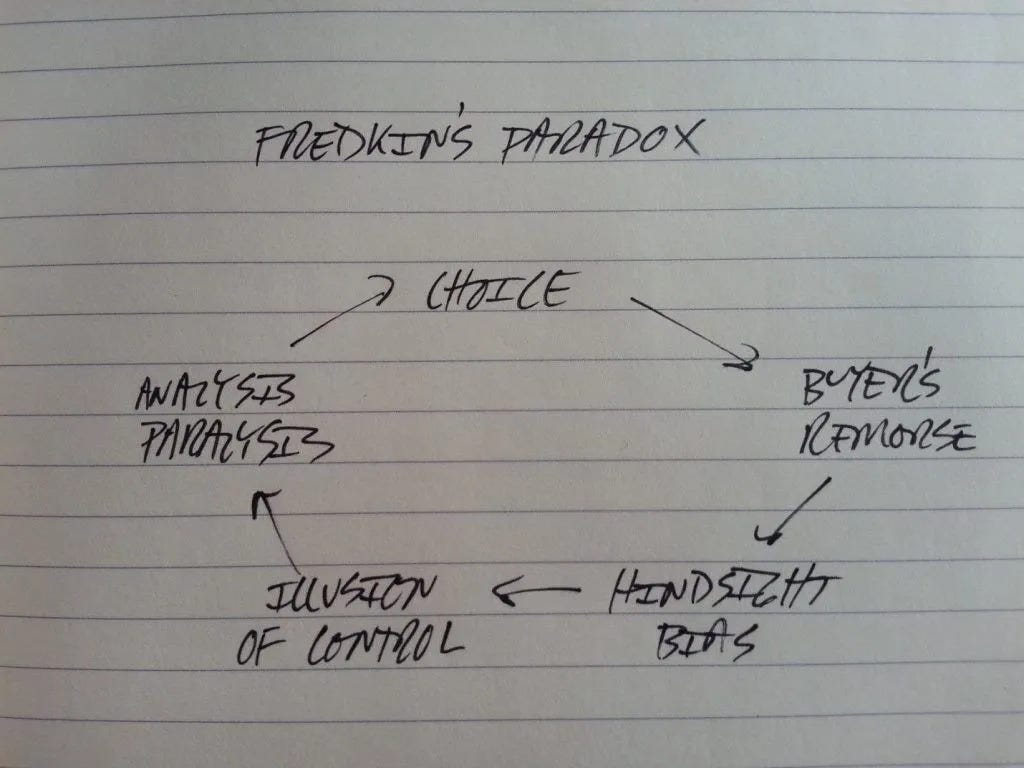 FREDKIN'S PARADOX
CHOICE
BUYER'S
REMORSE
HINDSIGHT
BIAS
ILLUSION
OF CONTROL
ANALYSIS
PARALYSIS